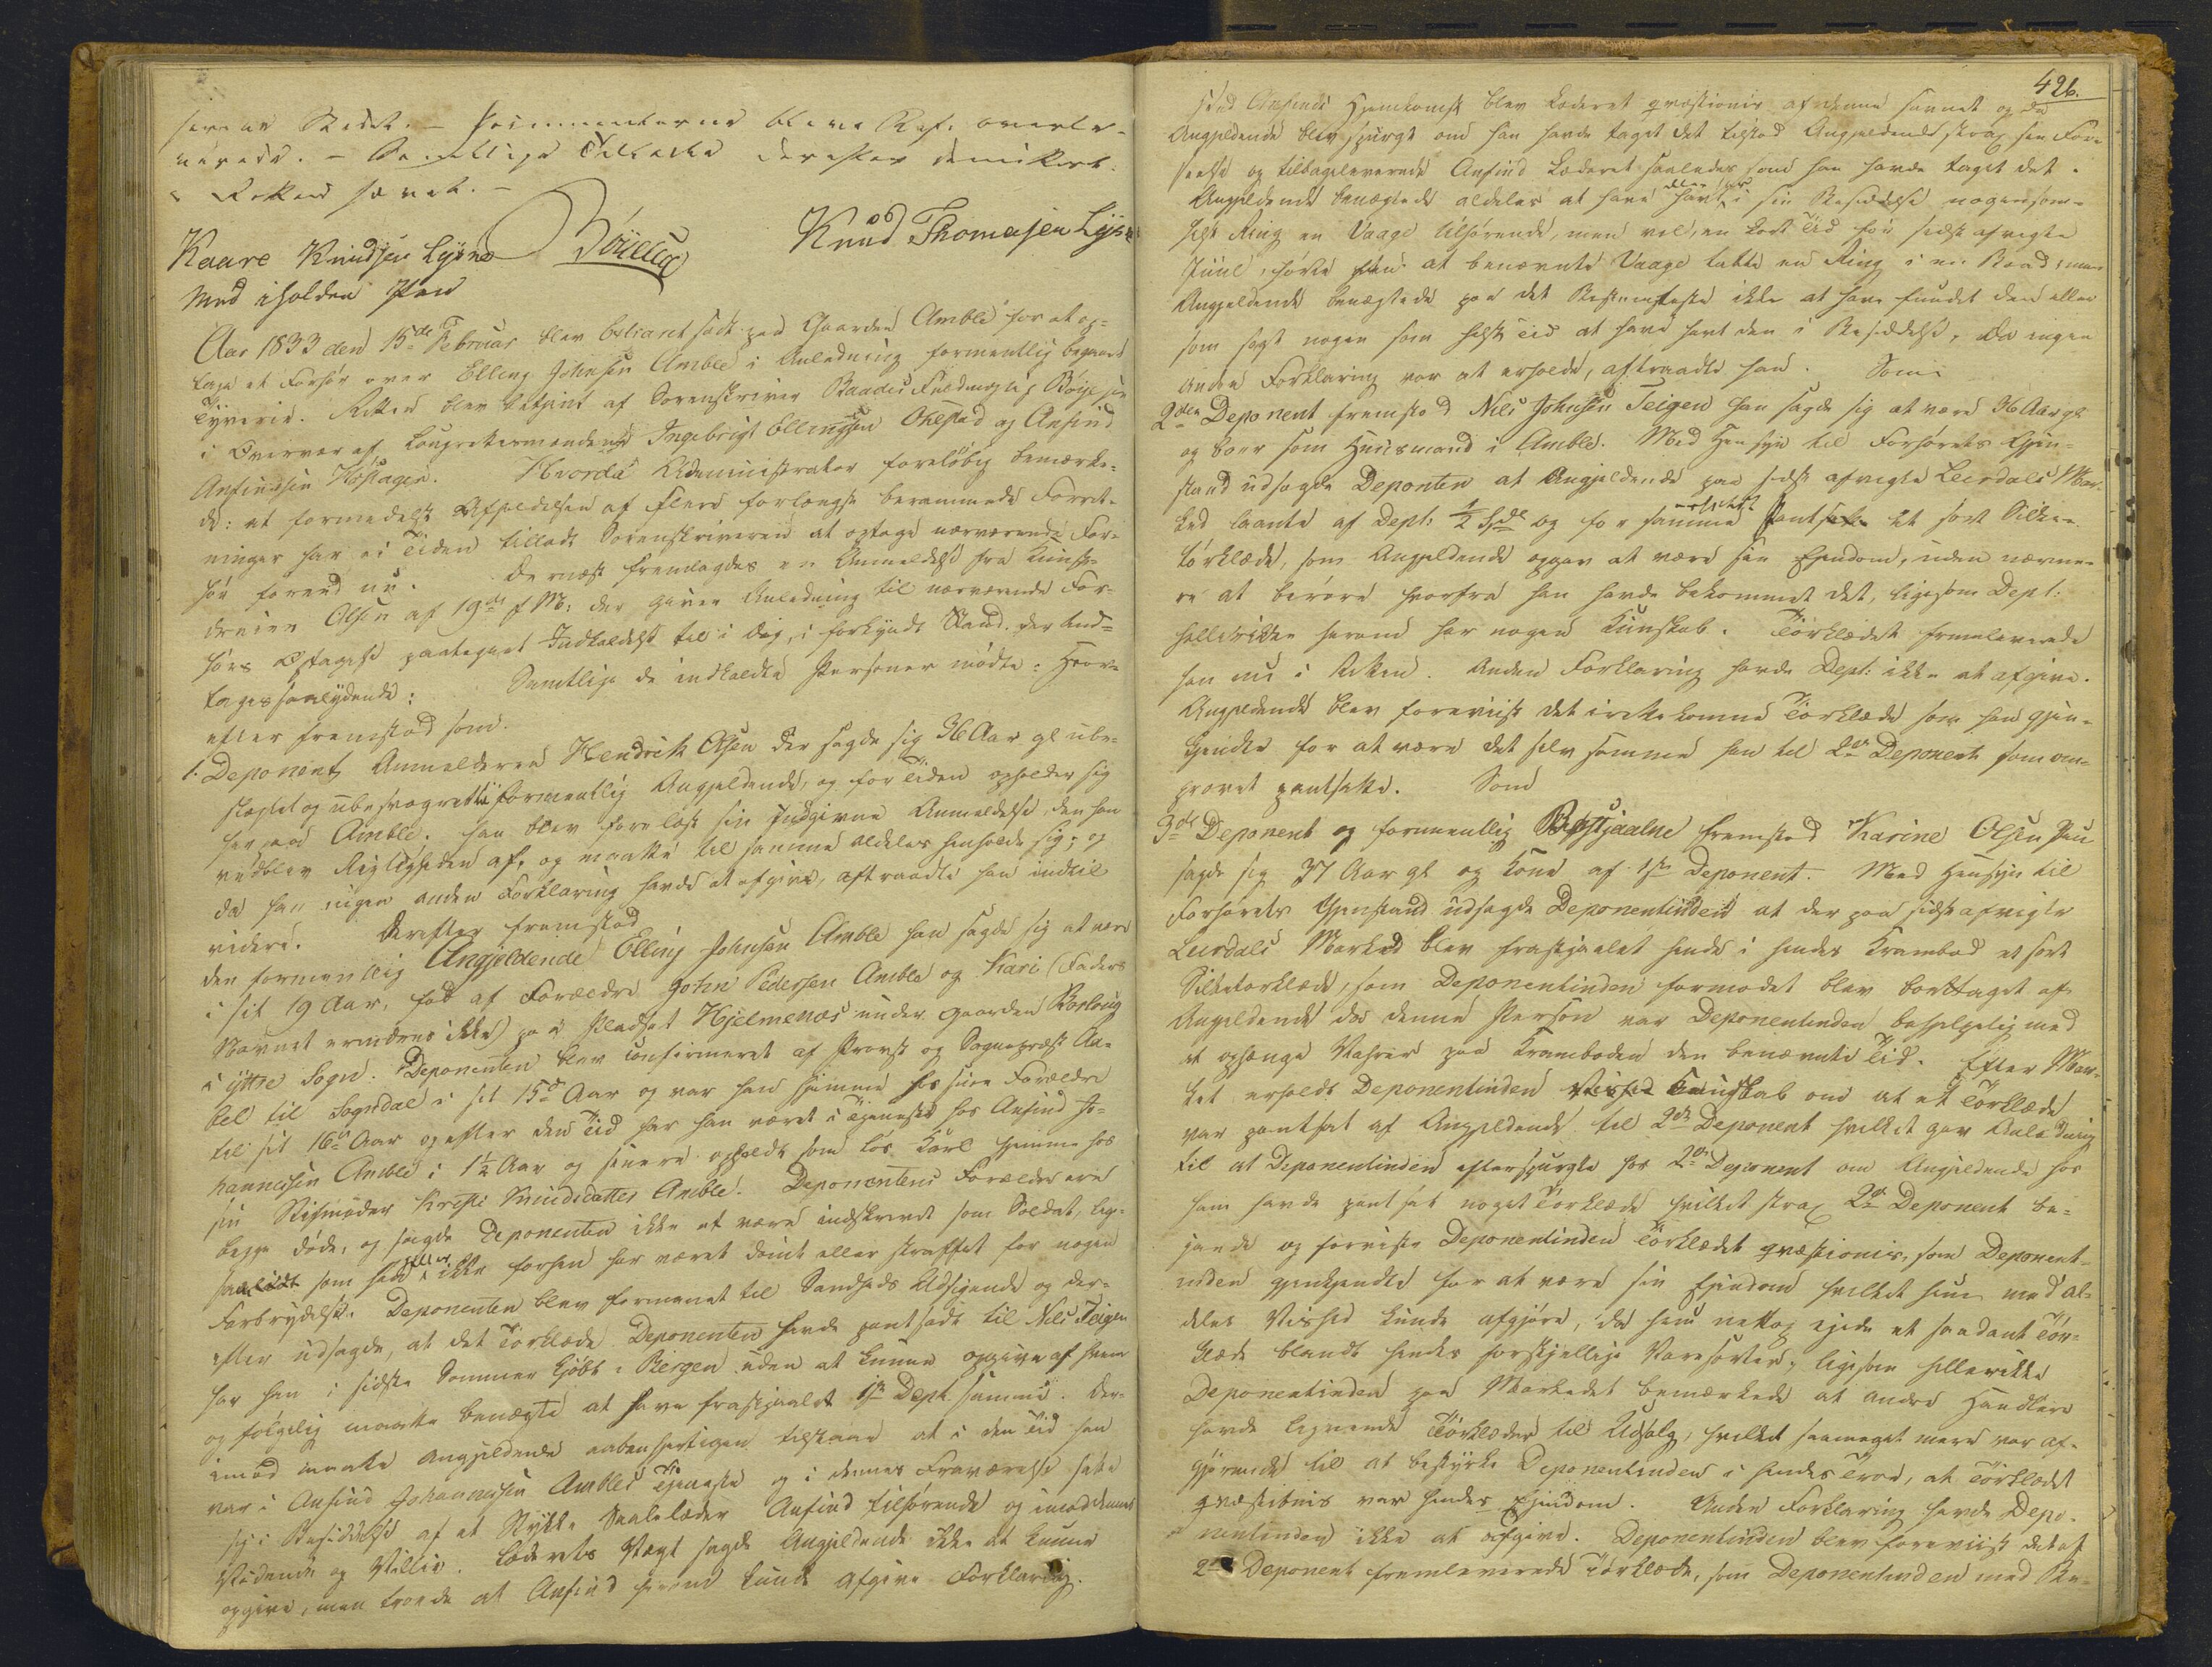 hørte Stedet. – Præmmenterne bleve Ref. overle-
verede. – Samtlige Tilkaldte derefter demitteret.
Retten hævet. –
Kaare Knudsen Lysne Böyesen Knud Thomasen Lysne
med iholden Pen
Aar 1833 den 15de Februar blev Extraret sadt paa Gaarden Amble for at op-
tage et Forhør over Elling Johnsen Amble i Anledning formentlig begaaet
Tyverie. Retten blev betjent af Sorenskriver Baades Fuldmægtig Böyesen
i Overvær af Laugrettesmændene Ingebrigt Ellingsen Ohnstad og Ansind
Ansindsen Kapagen. Hvorda Administrator foreløbig bemærke-
de: at formedelst Afholdelsen af flere forlængst berammede Forret-
ninger har ei Tiden tilladt Sorenskriveren at optage nærværende For-
hør forend nu. Dernæst fremlagdes en Anmeldelse fra
Olsen af 19de f. M: der giver Anledning til nærværende For-
hørs Optagelse paategnet Indkaldelse til i Dag, i forkyndt Stand. der Ind-
tages saalydende: Samtlige de indkaldte Personer mødte: Hvor-
efter fremstod som
1. Deponent Anmelderen Hendrik Olsen der sagde sig 36 Aar gl ube-
slægtet og ubesvogret til formentlig Angjeldende, og for Tiden opholder sig
her paa Amble. Han blev forelæst sin Indgivne Anmeldelse, den han
vedblev Rigtigheden af, og maatte til samme aldeles henholde sig; og
da han ingen anden Forklaring havde at afgive, aftraadte han indtil
videre. Derefter fremstod
den formentlig Angjeldende Elling Johnsen Amble han sagde sig at være
i sit 19 Aar, født af Forældre John Pedersen Amble og Kari (Faders
Navnet erindres ikke) paa Pladset Hjelmenæs under Gaarden Borlaug
i ytre Sogn. Deponenten blev confirmeret af Provst og Sognepræst
til Sogndal i sit 15de Aar og var han hjemme hos sine Forældre
til sit 16de Aar og efter den Tid har han været i Tjeneste hos Ansind Jo-
hannesen Amble i 1½ Aar og senere opholdt som løs Karl hjemme hos
sin Stifmoder Kristi Knudsdatter Amble. Deponentens Forældre ere
begge døde, og sagde Deponenten ikke at være indskrevet som Soldat, lig-
som han eller ikke forhen har været dømt eller straffet for nogen
Forbrydelse. Deponenten blev formanet til Sandheds Udsigende og der-
efter udsagde, at det Törklæde Deponenten havde pantsadt til Nils Teigen
har han i sidste Sommer kjøbt i Bergen uden at kunne opgive af hvem
og følgelig maatte benægte at have frastjaalet 1ste Dept. samme. Der-
imod maatte Angjeldende aabenhjertigen tilstaae at i den Tid han
var i Ansind Johannesen Ambles Tjeneste og i dennes Fraværelse satte
sig i Besiddelse af et Stykke Saalelæder Ansind tilhørende og imod dennes
Vidende og Villie. Læderets Vægt sagde Angjeldende ikke at kunne
opgive, men troede at Ansind herom kunde afgive Forklaring.
426.
Ved Ansinds Hjemkomst blev Læderet qvæstionis af denne savnet og da
Angjeldende blev spurgt om han havde taget det tilstod Angjeldende strax sin For-
seelse og tilbageleverede Ansind Læderet saaledes som han havde taget det.
Angjeldende benægtede aldeles at have havt i sin Besiddelse nogensom-
helst Ring en Vaage tilhørende, men vel, en kort Tid før sidst afvigte
Juul, hørte han at benævnte Vaage tabte en Ring i en Baad; men
Angjeldende benægtede paa det Bestemteste ikke at have fundet den eller
som sagt nogen som helst Tid at have havt den i Besiddelse. Da ingen
anden Forklaring var at erholde, aftraadte han. Som
2den Deponent fremstod Nils Johnsen Teigen han sagde sig at være 36 Aar gl
og boer som Huusmand i Amble. Med Hensyn til Forhørets Gjen-
stand udsagde Deponten at Angjeldende paa sidst afvigte Leirdals Mar-
ked laante af Dept: ½ Spd og for samme pantsatte et sort Silke-
törklæde, som Angjeldende opgav at være sin Ejendom, uden nærme-
re at berøre hvorfra han havde bekommet det, ligesom Dept:
hellerikke herom har nogen Kundskab. Törklædet fremleverede
han nu i Retten. Anden Forklaring havde Dept: ikke at afgive.
Angjeldende blev foreviist det Törklæde som han gjen-
kjendte for at være det selv samme han til 2den Deponent som om-
prøvet pantsatte. Som
3de Deponent og formentlig Bestjaalne fremstod Karine Olsen hun
sagde sig 37 Aar gl og Kone af 1ste Deponent. Med Hensyn til
Forhørets Gjenstand udsagde Deponentinden at der paa sidst afvigte
Leirdals Marked blev frastjaalet hende i hendes Krambod et sort
Silketorklæde, som Deponentinden formodet blev borttaget af
Angjeldende da denne Person var Deponentinden behjelpelig med
at ophænge Vahrer paa Kramboden den benævnte Tid. Efter Mar-
ket erholdt Deponentinden Kundskab om at et Törklæde
var pantsat af Angjeldende til 2den Deponent hvilket gav Anledning
til at Deponentinden efterspurgte hos 2den Deponent om Angjeldende hos
ham havde pantsat noget Törklæde hvilket strax 2den Deponent be-
jaede og foreviste Deponentinden Törklædet qvæstionis, som Deponent-
inden gjenkjendte for at være sin Ejendom hvilket hun med al-
deles Vished kunde afgjøre, da hun netop ejede et saadant Tör-
klæde blandt hendes forskjellige Varesorter; ligesom hellerikke
Deponentinden paa Markedet bemærkede at andre Handlere
havde lignende Törklæder til Udsalg, hvilket saameget mere var af-
gjørende til at bestyrke Deponentinden i hendes Troe, at Törklædet
qvæstionis var hendes Ejendom. Anden Forklaring havde Depo-
nentinden ikke at afgive. Deponentinden blev foreviist det af
2den Deponent fremleverede Törklæde, som Deponentinden med Be-